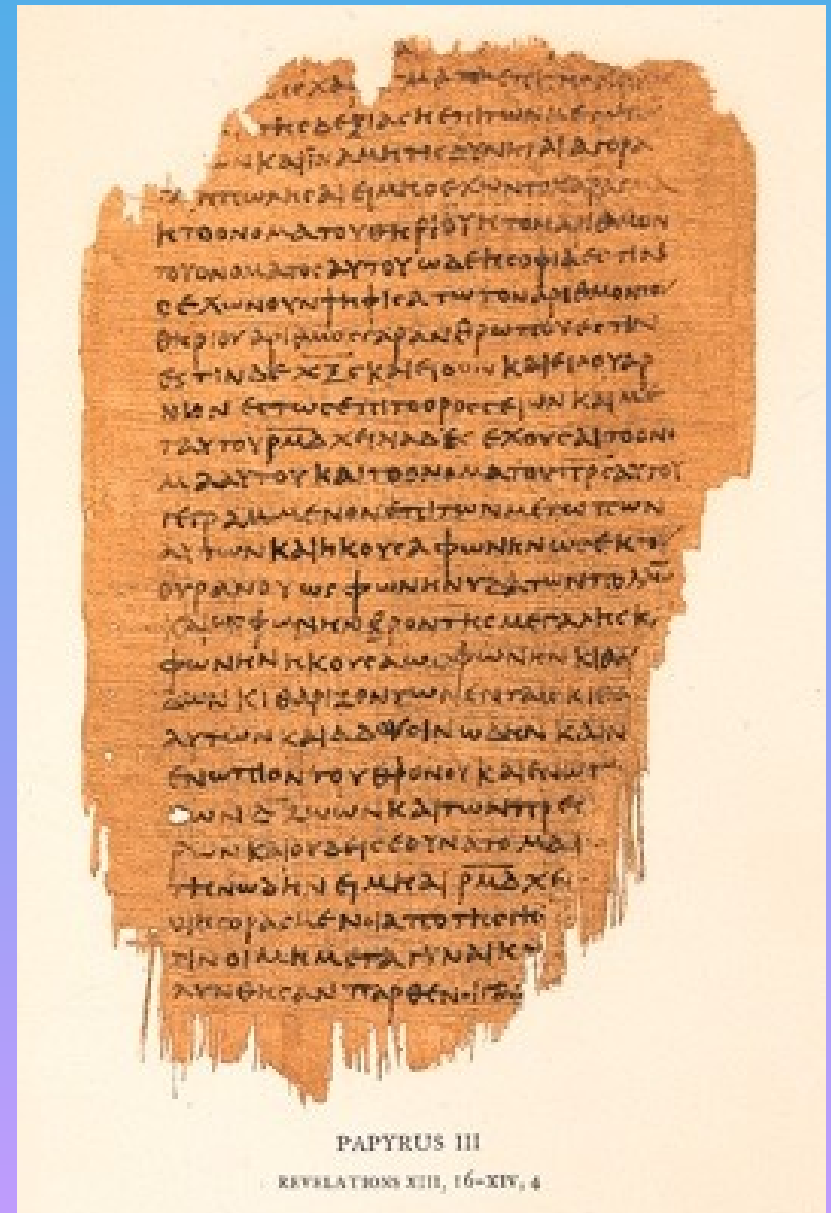 ΤΗϹ ΔΕΞΙΑϹ Η ΕΠΙ ΤΩΝ
ΚΑΙ ΙΝΑ ΜΗΤΙϹ ΔΥΝΗΤΑΙ ΑΓΟΡΑ
ΠΩΛΗϹΑΙ ΕΙ ΜΗ Ο ΕΧΩΝ ΤΟ ΧΑΡΑΓΜΑ
Η ΤΟ ΟΝΟΜΑ ΤΟΥ ΘΗΡΙΟΥ Η ΤΟΝ ΑΡΙΘΜΟΝ
ΤΟΥ ΟΝΟΜΑΤΟϹ ΑΥΤΟΥ ΩΔΕ Η ϹΟΦΙΑ ΕϹΤΙΝ
Ο ΕΧΩΝ ΟΥΝ ΨΗΦΙϹΑΤΩ ΤΟΝ ΑΡΙΘΜΟΝ ΤΟΥ
ΘΗΡΙΟΥ ΑΡΙΘΜΟϹ ΓΑΡ ΑΝΘΡΩΠΟΥ ΕϹΤΙΝ
ΕϹΤΙΝ ΔΕ ΧΞϹ ΚΑΙ ΕΙΔΟΝ ΚΑΙ ΕΙΔΟΥ ΑΡ
ΝΙΟΝ ΕϹΤΩϹ ΕΠΙ ΤΟ ΟΡΟϹ ϹΕΙΩΝ ΚΑΙ ΜΕ
ΤΑΥΤΟΥ ΡΜΔ ΧΕΙΝΑΔΕϹ ΕΧΟΥϹΑΙ ΤΟ ΟΝΟ
ΜΑ ΑΥΤΟΥ ΚΑΙ ΤΟ ΟΝΟΜΑ ΤΟΥ ΠΡϹ ΑΥΤΟΥ
ΓΕΓΡΑΜΜΕΝΟΝ ΕΠΙ ΤΩΝ ΜΕΤΩΠΩΝ
ΑΥΤΩΝ ΚΑΙ ΗΚΟΥϹΑ ΦΩΝΗΝ ΩϹ ΕΚ ΤΟΥ
ΟΥΡΑΝΟΥ ΩϹ ΦΩΝΗΝ ΥΔΑΤΩΝ ΠΟΛΛΩ
ΚΑΙ ΩϹ ΦΩΝΗΝ ΒΡΟΝΤΗϹ ΜΕΓΑΛΗϹ Κ
ΦΩΝΗΝ ΗΚΟΥϹΑ ΩϹ ΦΩΝΗΝ ΚΙΘΑ
ΔΩΝ ΚΙΘΑΡΙΖΟΝΤΩΝ ΕΝ ΤΑΙϹ ΚΙΘΑ
ΑΥΤΩΝ ΚΑΙ ΑΔΟΥϹΙΝ ΩΔΗΝ ΚΑΙΝ
ΕΝΩΠΙΟΝ ΤΟΥ ΘΡΟΝΟΥ ΚΑΙ ΕΝΩΠ
ΤΩΝ Δ ΖΩΩΝ ΚΑΙ ΤΩΝ ΠΡΕϹ
ΡΩΝ ΚΑΙ ΟΥΔΕΙϹ ΕΔΥΝΑΤΟ ΜΑ
ΤΗΝ ΩΔΗΝ ΕΙ ΜΗ ΑΙ ΡΜΔ ΧΕΙ
ΟΙ ΗΓΟΡΑϹΜΕΝΟΙ ΑΠΟ ΤΗϹ ΓΗϹ
ΤΙΝ ΟΙ ΜΗ ΜΕΤΑ ΓΥΝΑΙΚ
ΛΥΝΘΗϹΑΝ ΠΑΡΘΕΝΟΙ ΓΑΡ
PAPYRUS III
REVELATIONS XIII, 16–XIV, 4